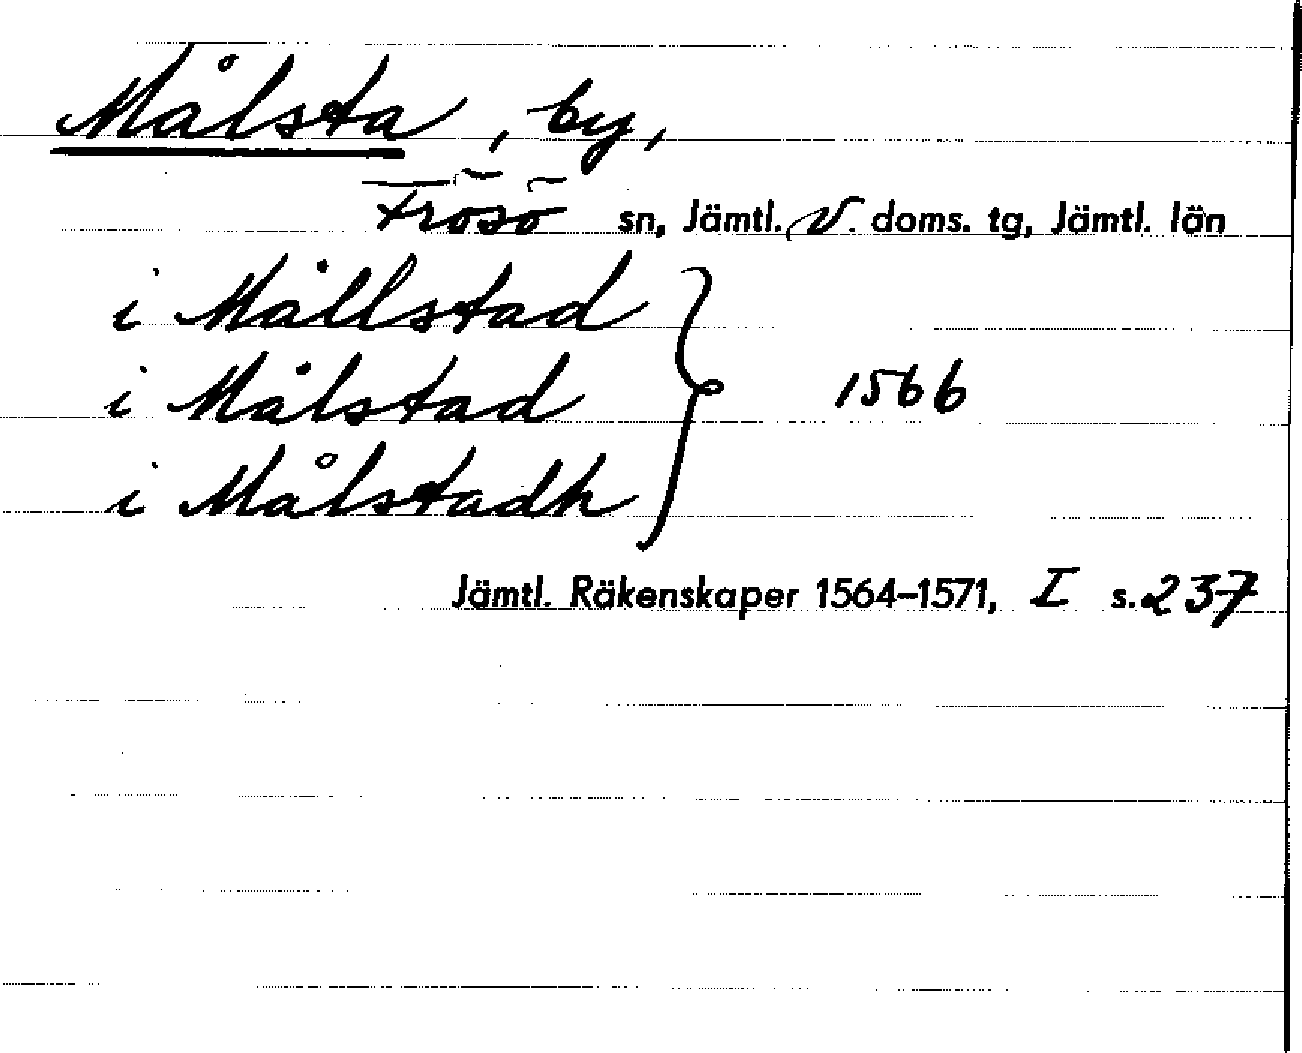 Målsta, by,
Frösö sn, Jämtl. V. doms. tg, Jämtl. län
i Mållstad
i Målstad 1566
i Målstadh
Jämtl. Räkenskaper 1564–1571, I s. 237